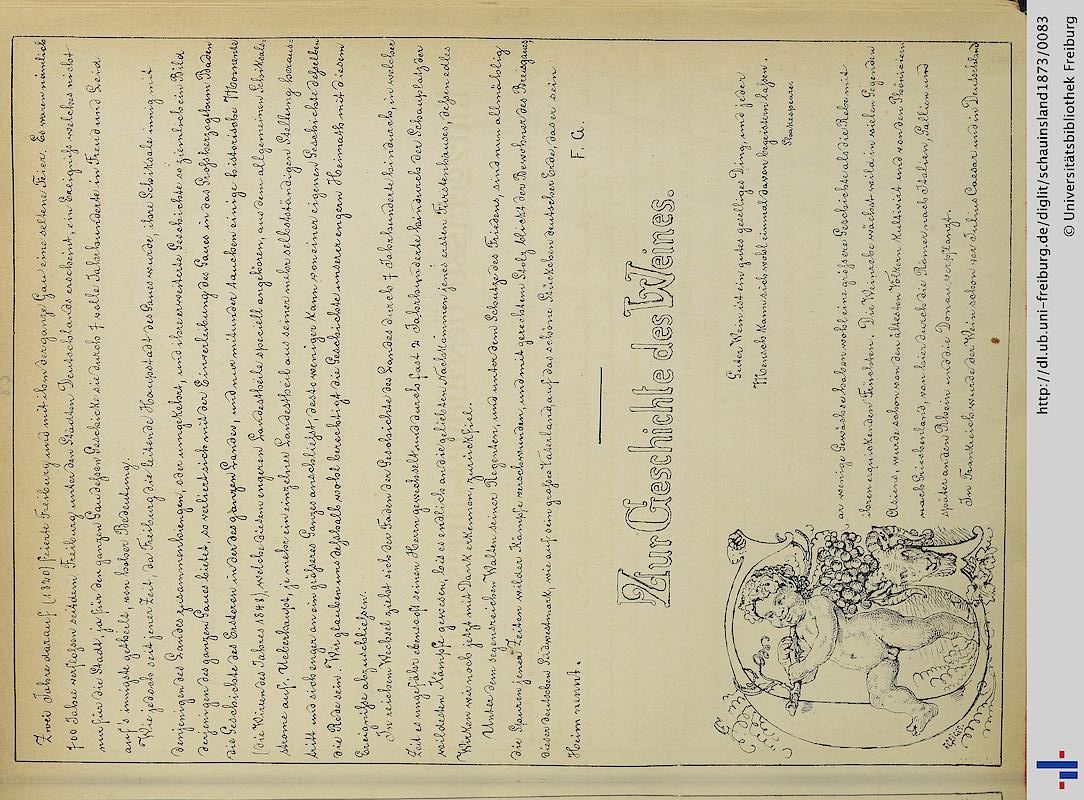 Zwei Jahre darauf (1820) feierte Freiburg und mit ihm der ganze Gau eine seltene Feier. Es waren nämlich
700 Jahre verflossen seitdem Freiburg unter den Städten Deutschlands erscheint, ein Ereigniß welches nicht
nur für die Stadt, ja für den ganzen Gau dessen Geschicke sie durch 7 volle Jahrhunderte in Freud und Leid
auf's innigste getheilt, von hoher Bedeutung.
Wie jedoch seit jener Zeit, da Freiburg die leitende Hauptstadt des Gaues wurde, ihre Schicksale innig mit
denjenigen des Landes zusammenhiengen, oder umgekehrt, und ihre erweiterte Geschichte so ziemlich ein Bild
derjenigen des ganzen Gaues bietet, so verliert sich mit der Einverleibung des Gaues in das Großherzogthum Baden
die Geschichte des Ersteren in der des ganzen Landes, und nur mitunter tauchen einige historische Momente
(die Wirren des Jahres 1848), welche diesem engeren Landestheile speciell angehören, aus dem allgemeinen Schicksals-
strome auf. Ueberhaupt, je mehr ein einzelner Landestheil aus seiner mehr selbstständigen Stellung heraus-
tritt und sich enger an ein größeres Ganzes anschließt, desto weniger kann von einer eigenen Geschichte desselben
die Rede sein. Wir glauben uns deßhalb wohl berechtigt die Geschichte unserer engern Heimath mit diesem
Ereigniße abzuschließen.
In reichem Wechsel zieht sich der Faden der Geschichte des Landes durch 7 Jahrhunderte hindurch, in welcher
Zeit es ungefähr ebenso oft seinen Herrn gewechselt und durch fast 2 Jahrhunderte hindurch der Schauplatz der
wildesten Kämpfe gewesen, bis es endlich an die geliebten Nachkommen jenes ersten Fürstenhauses, dessen edles
Wirken wir noch jetzt mit Dank erkennen, zurückfiel.
Unter dem segensreichen Walten seiner Regenten, und unter dem Schutze des Friedens, sind nun allmählig
die Spuren jener Zeiten wilder Kämpfe verschwunden, und mit gerechtem Stolz blickt der Bewohner des Breisgaues
dieser deutschen Südwestmark, wie auf sein großes Vaterland, auf das schöne Stückchen deutscher Erde, das er sein
Heim nennt.
F. A.
Zur Geschichte des Weines.
Guter Wein ist ein gutes geselliges Ding, und jeder
Mensch kann sich wohl einmal davon begeistern laßen.
Shakespeare.
ar wenige Gewächse haben wohl eine größere Geschichte als die Rebe mit
ihren erquickenden Früchten. Die Weinrebe wächst wild in vielen Gegenden
Asiens, wurde schon von den ältesten Völkern kultivirt und von den Phöniciern
nach Griechenland, von hier durch die Römer nach Italien, Gallien und
später an den Rhein und die Donau verpflanzt.
In Frankreich wurde der Wein schon vor Julius Caesar und in Deutschland
http://dl.ub.uni-freiburg.de/diglit/schauinsland1873/0083
© Universitätsbibliothek Freiburg